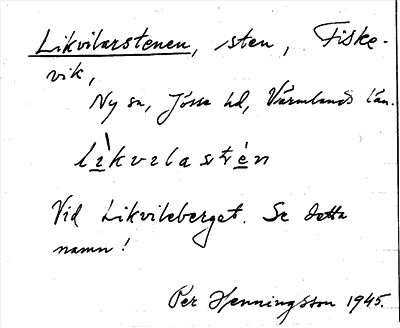 Likvilarstenen, sten, Fiske-
vik,
Ny sn, Jösse hd, Värmlands län.
lìkvɩlastén
Vid Likvileberget. Se detta
namn!
Per Henningsson 1945.